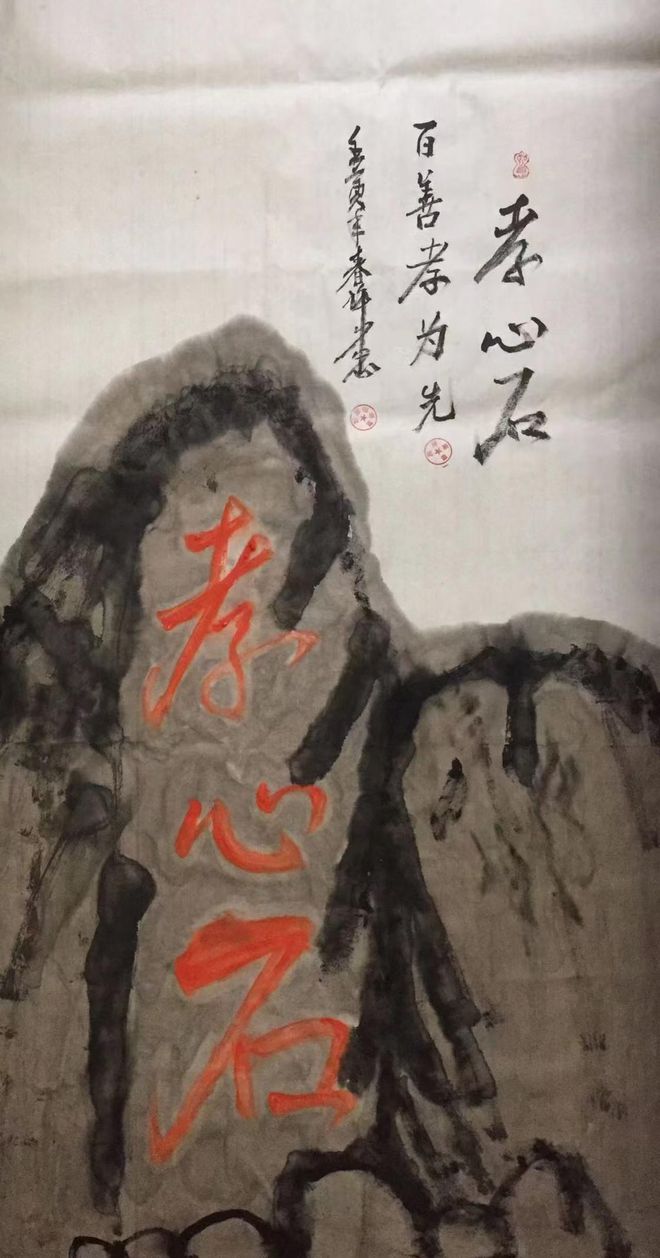 孝心石
百善孝为先
壬寅年春作
孝心石